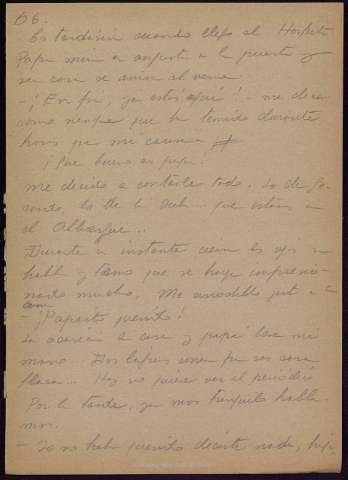 66.
Es tardísimo cuando llego al Hospital
Papá mira con angustia a la puerta y
su cara se anima al verme
- ¡En fin, ya estás aquí! - me dice
como siempre que ha temido durante
horas
¡Que bueno es papá!
me decido a contarle todo. Lo de
lo de la que estamos en
el Albergue..
Durante un instante cierra los ojos no
habla y temo que se haya impresio-
nado mucho. Me arrodillo junto a la
cama
- ¡Papaíto querido!
la cara y papá besa mi
mano... Dos lágrimas corren por sus
Hoy no quiere ver el periódico
Por la tarde, ya mas tranquilo habla-
mos.
- Yo no había querido decirte nada, hija